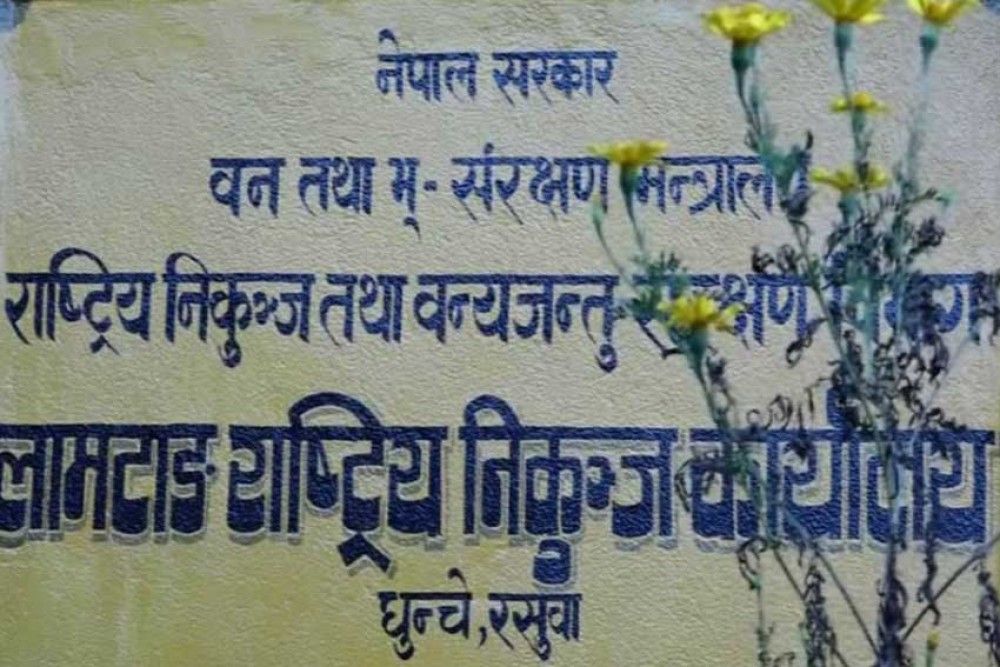 नेपाल सरकार
वन तथा भू- संरक्षण मन्त्रालय
राष्ट्रिय निकुञ्ज तथा वन्यजन्तु संरक्षण विभाग
लामटाङ राष्ट्रिय निकुञ्ज कार्यालय
धुन्चे, रसुवा